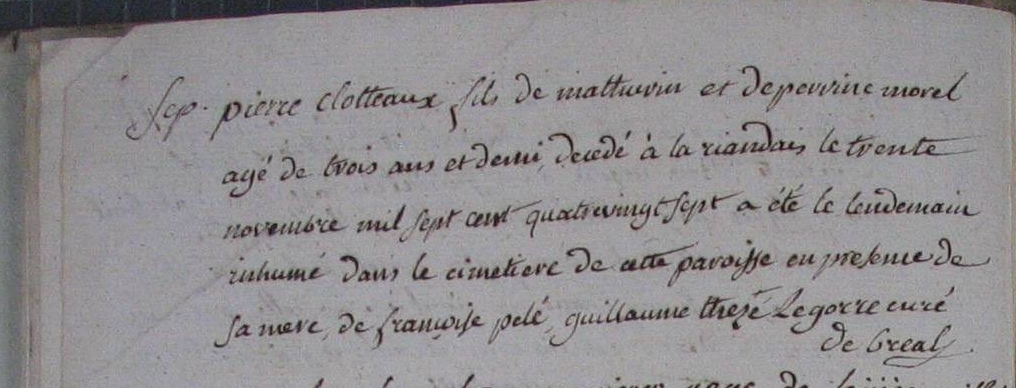 Sep. pierre clotteaux fils de mathurin et de perrine morel
agé de trois ans et demi, decedé à la riandais le trente
novembre mil sept cent quatrevingt sept a été le lendemain
inhumé dans le cimetiere de cette paroisse en presence de
sa mere, de françoise pelé, guillaume thezé Legorre curé
de breal